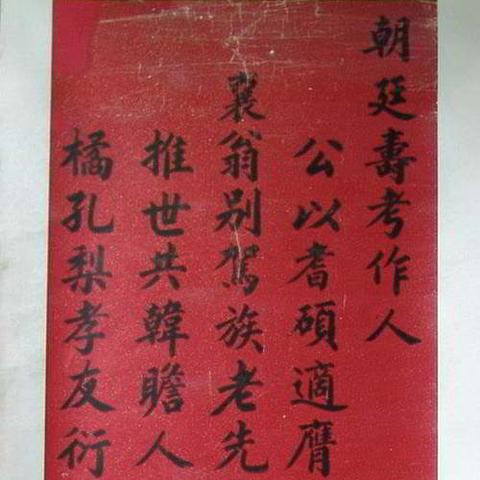 朝廷壽考作人
公以耆碩適膺
襄翁别駕族老先
推世共韓瞻人
橘孔梨孝友衍